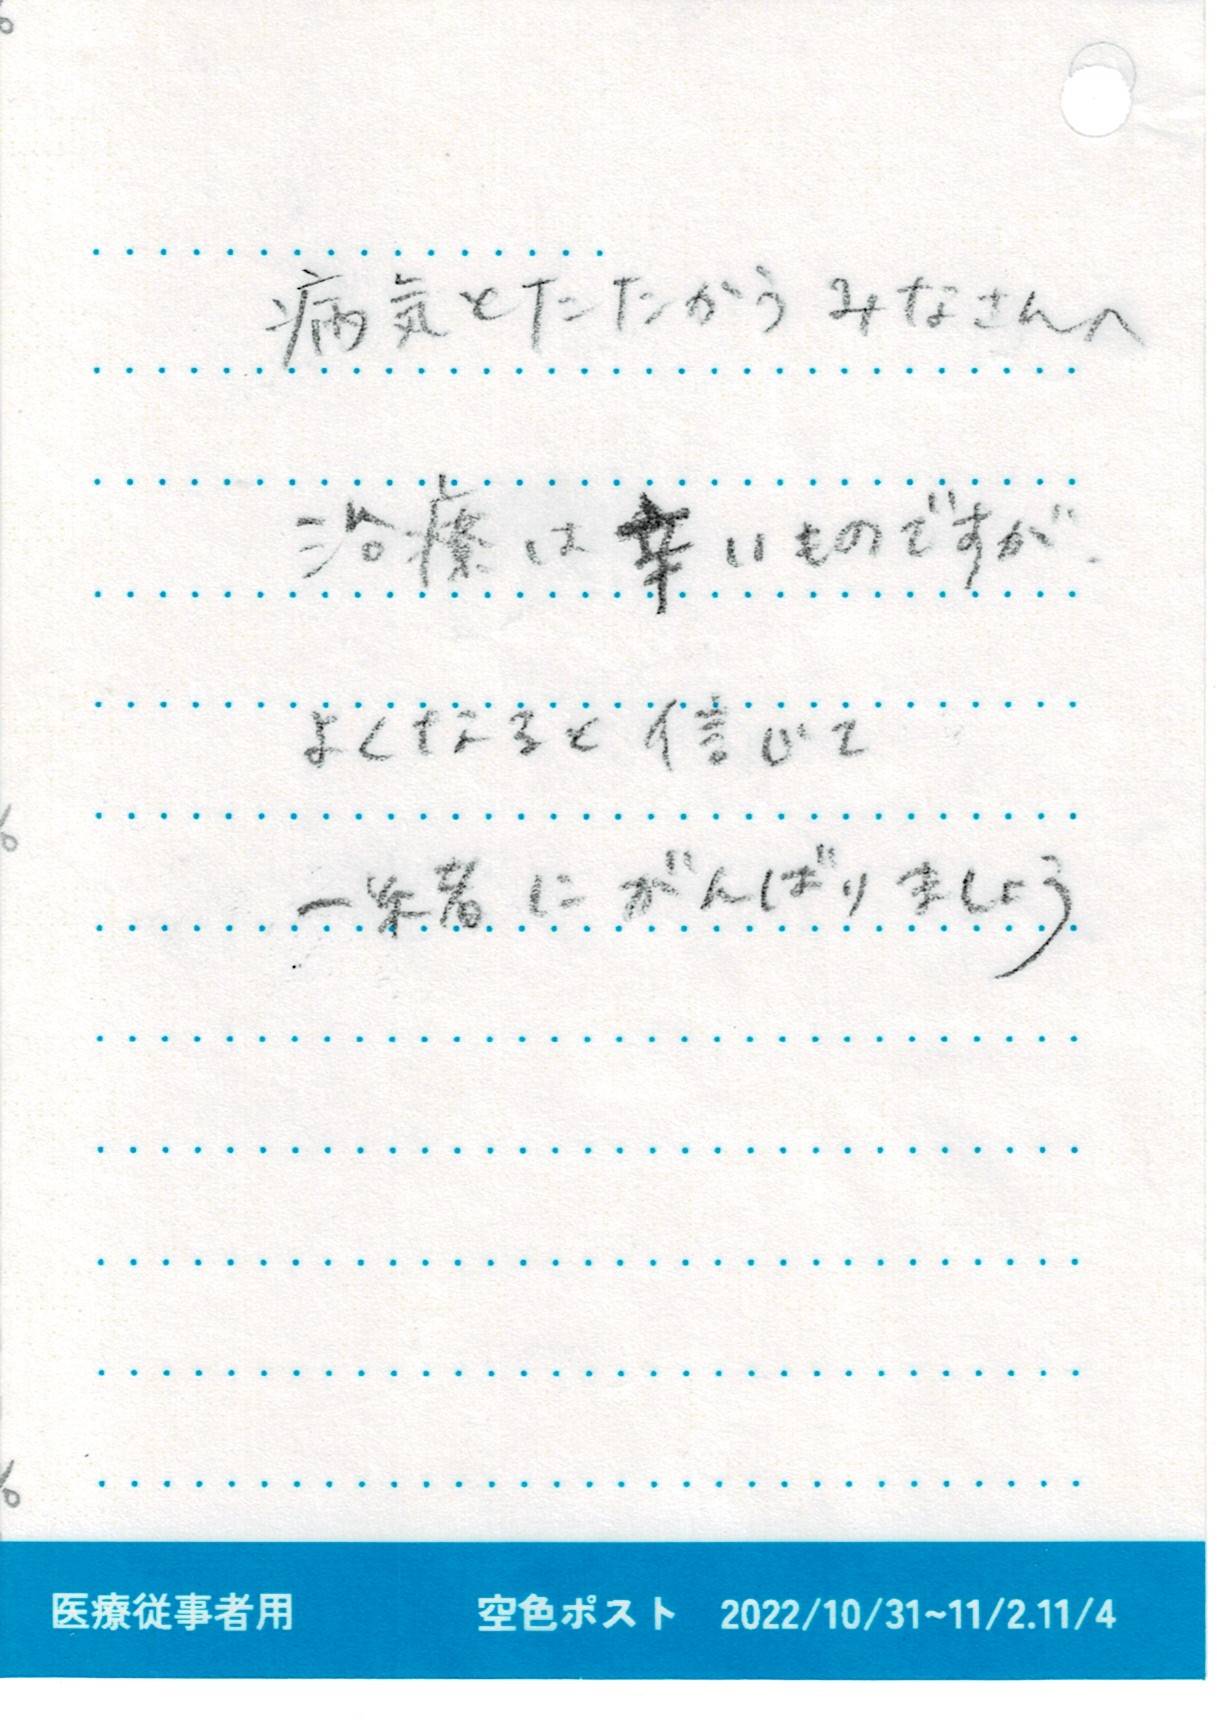 病気とたたかうみなさんへ
治療は辛いものですが、
よくなると信じて
一緒にがんばりましょう
医療従事者用 空色ポスト 2022/10/31~11/2.11/4